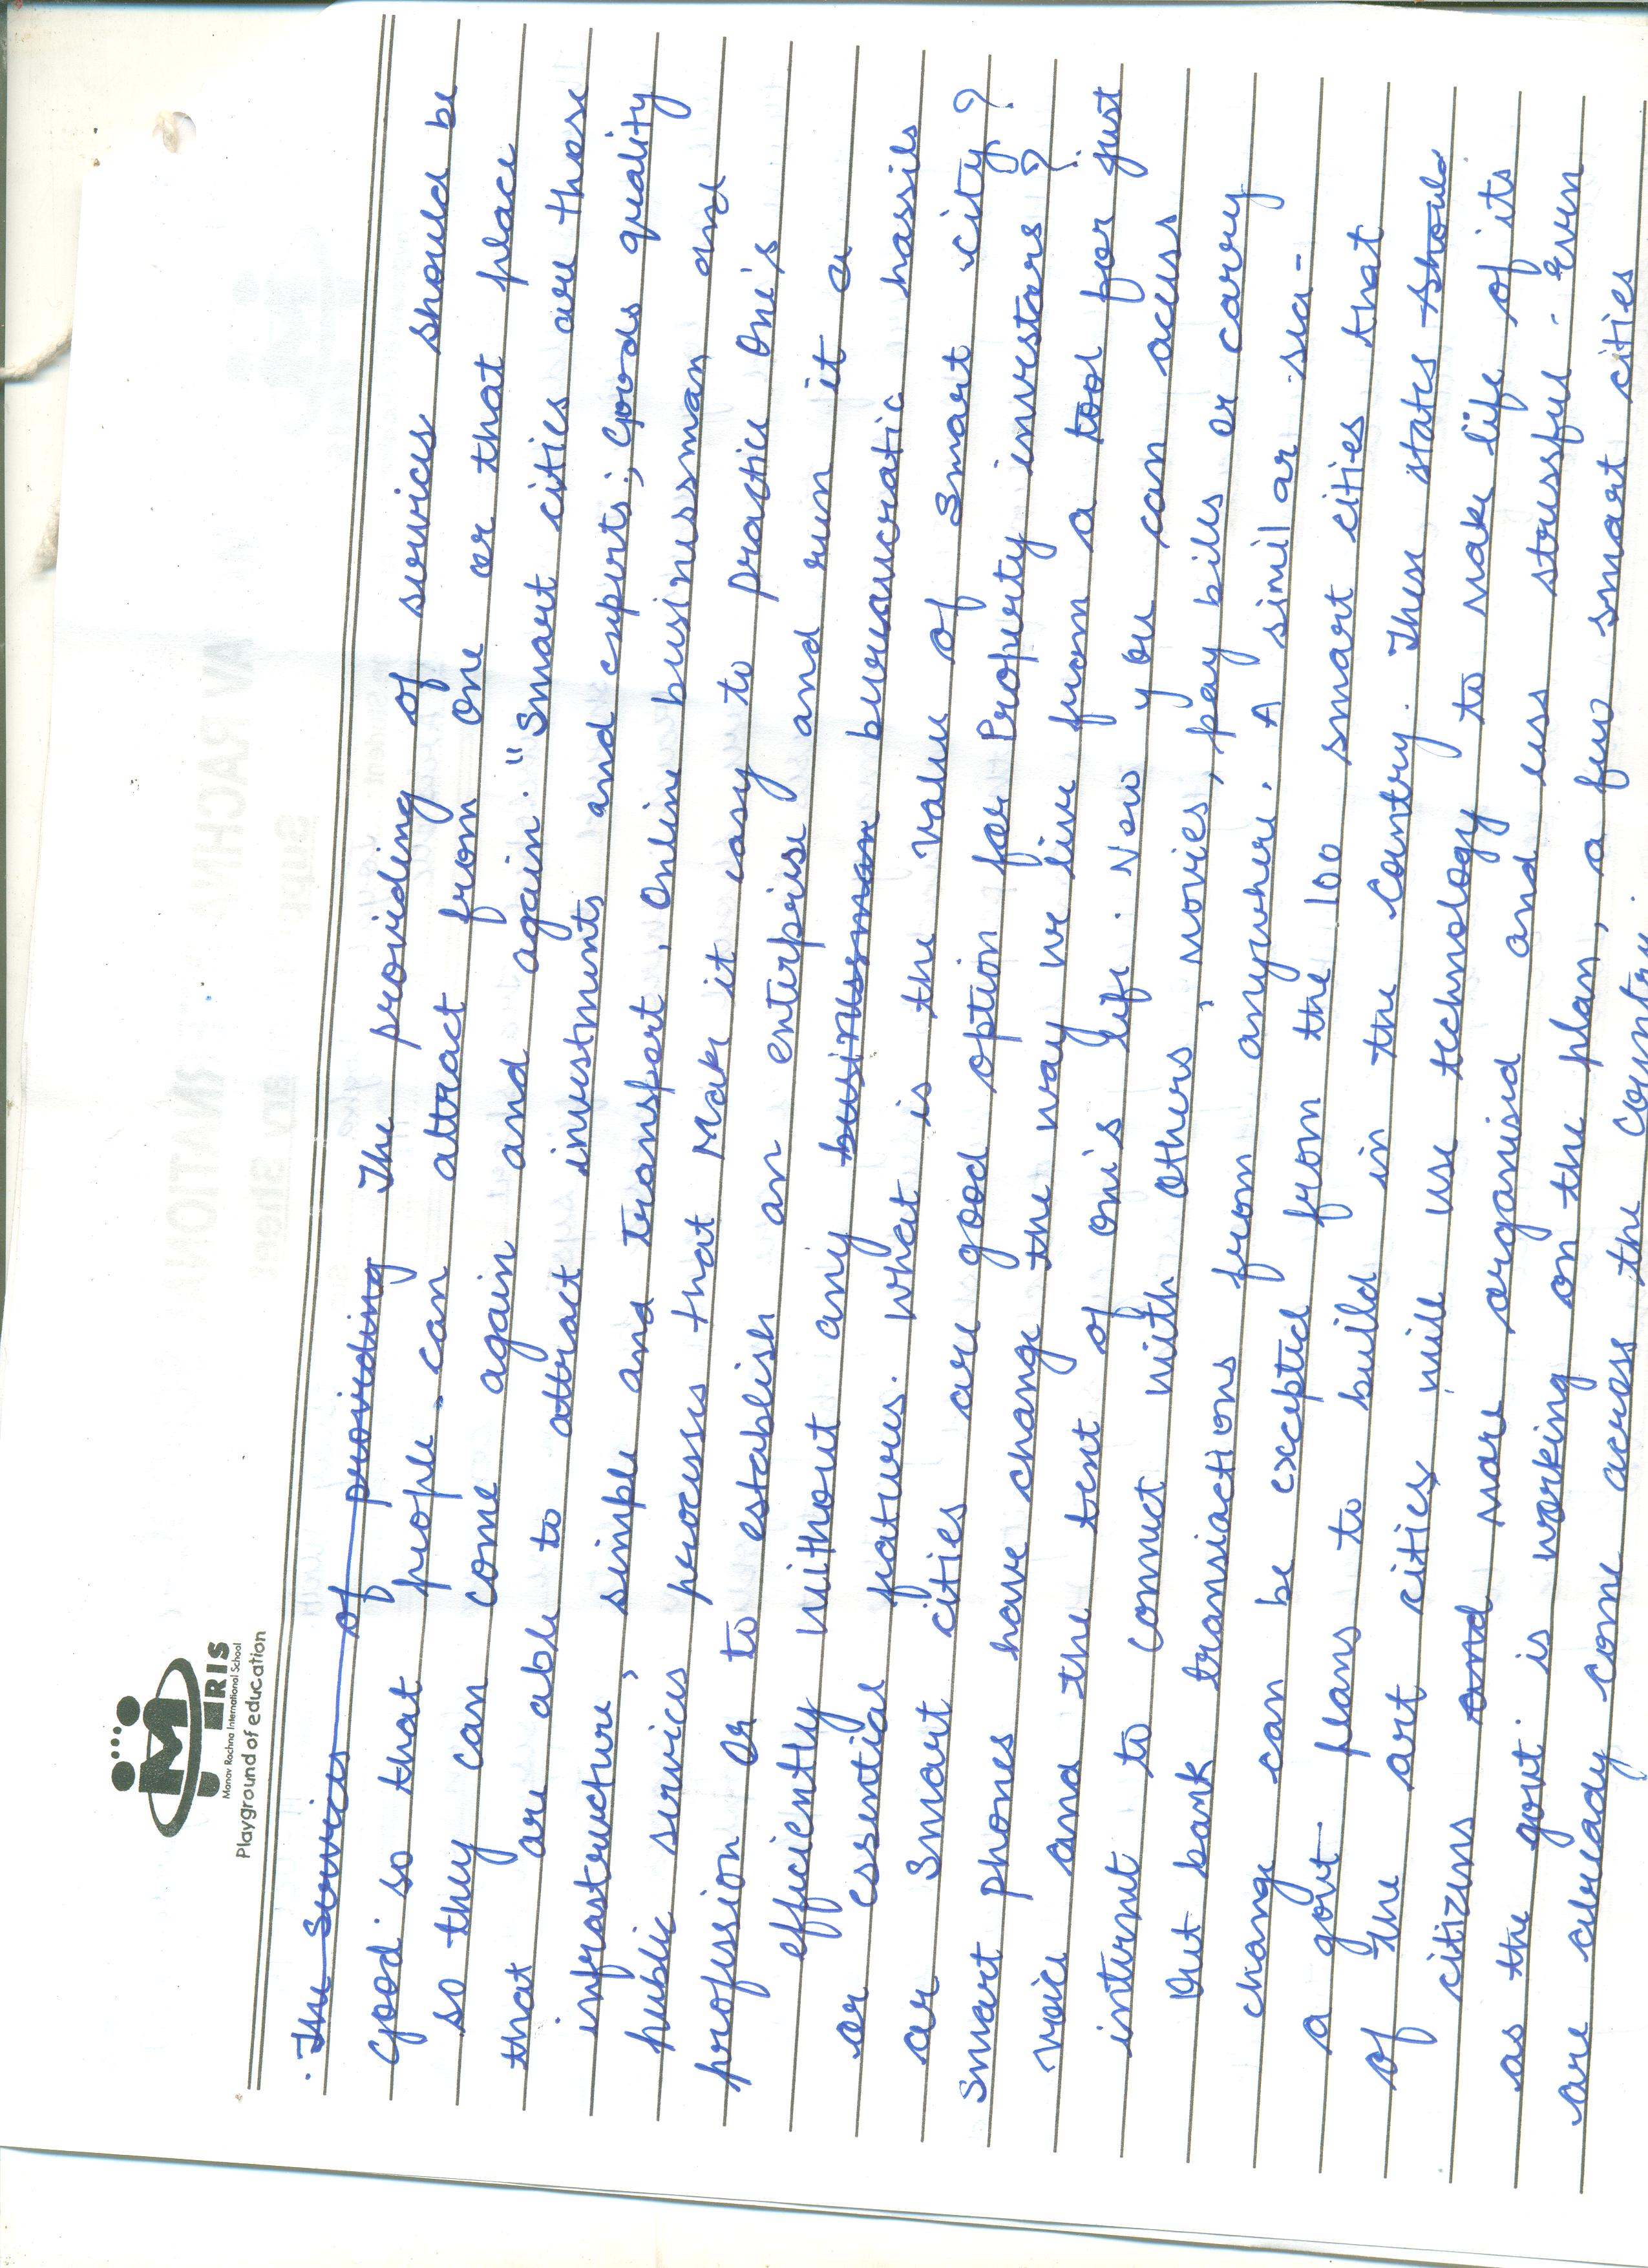 MRIS
Manav Rachna International School
Playground of education
The Services of providing The providing of services should be
Good. so that people can attract from One or that place
so they can come again and again. "Smart cities are those
that are able to attract investments and experts; Goods quality
infrastructure, simple and transport, Online businessman and
public services processes that Make it easy to practice One's
profession or to establish an enterprise and run it a
efficiently without any businessman bureaucratic hassils
or essential features. What is the value of Smart city?
ar Smart cities are good option for Property investors?
Smart phones have change the way we live from a tool for just
voice and the tent of one's life. Now you can acess
internet to connect with Others, movies, pay bills or carry
Out bank transiactions from anywhere. A similar sca-
change can be excepted from the 100 smart cities that
a govt plans to build in the Country. Then states should
of the art cities will use technology to make life of its
citizens and more organised and less stressful. Even
as the govt. is working on the plan, a few smart cities
are already come across the country.